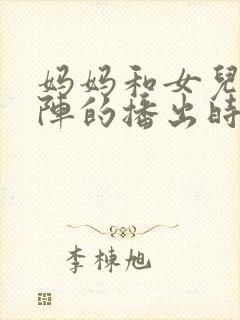 妈妈和女兒
陣的播出時
李棟旭